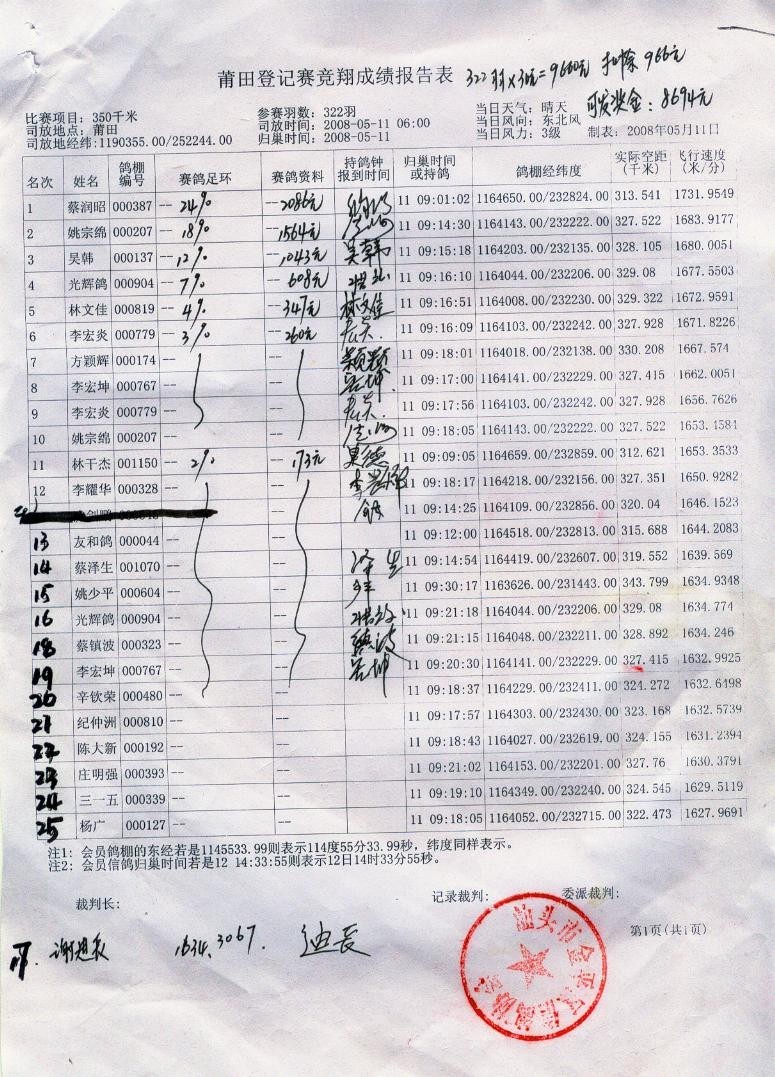 莆田登记赛竞翔成绩报告表 322羽×30元=9660元 扣除966元
可发奖金：8694元
比赛项目：350千米 参赛羽数：322羽 当日天气：晴天
司放地点：莆田 司放时间：2008-05-11 06:00 当日风向：东北风
司放地经纬:1190355.00/252244.00 归巢时间：2008-05-11 当日风力：3级 制表：2008年05月11日
名次 姓名 鸽棚编号 赛鸽足环 赛鸽资料 持鸽钟报到时间 归巢时间或持鸽 鸽棚经纬度 实际空距(千米) 飞行速度(米/分)
1 蔡润昭 000387 --24% --2086元 11 09:01:02 1164650.00/232824.00 313.541 1731.9549
2 姚宗绵 000207 --18% --1564元 11 09:14:30 1164143.00/232222.00 327.522 1683.9177
3 吴韩 000137 --12% --1043元 吴韩 11 09:15:18 1164203.00/232135.00 328.105 1680.0051
4 光辉鸽 000904 --7% --608元 11 09:16:10 1164044.00/232206.00 329.08 1677.5503
5 林文佳 000819 --4% --347元 林文佳 11 09:16:51 1164008.00/232230.00 329.322 1672.9591
6 李宏炎 000779 --3% --260元 11 09:16:09 1164103.00/232242.00 327.928 1671.8226
7 方颖辉 000174 -- -- 11 09:18:01 1164018.00/232138.00 330.208 1667.574
8 李宏坤 000767 -- -- 11 09:17:00 1164141.00/232229.00 327.415 1662.0051
9 李宏炎 000779 -- -- 11 09:17:56 1164103.00/232242.00 327.928 1656.7626
10 姚宗绵 000207 -- -- 11 09:18:05 1164143.00/232222.00 327.522 1653.4584
11 林干杰 001150 --2% --173元 11 09:09:05 1164659.00/232859.00 312.621 1653.3533
12 李耀华 000328 -- -- 11 09:18:17 1164218.00/232156.00 327.351 1650.9282
11 09:14:25 1164109.00/232856.00 320.04 1646.1523
13 友和鸽 000044 -- -- 11 09:12:00 1164518.00/232813.00 315.688 1644.2083
14 蔡泽生 001070 -- -- 11 09:14:54 1164419.00/232607.00 319.552 1639.569
15 姚少平 000604 -- -- 11 09:30:17 1163626.00/231443.00 343.799 1634.9348
16 光辉鸽 000904 -- -- 11 09:21:18 1164044.00/232206.00 329.08 1634.774
18 蔡镇波 000323 -- -- 11 09:21:15 1164048.00/232211.00 328.892 1634.246
19 李宏坤 000767 -- -- 11 09:20:30 1164141.00/232229.00 327.415 1632.9925
20 辛钦荣 000480 -- -- 11 09:18:37 1164229.00/232411.00 324.272 1632.6498
21 纪仲洲 000810 -- -- 11 09:17:57 1164303.00/232430.00 323.168 1632.5739
22 陈大新 000192 -- -- 11 09:18:43 1164027.00/232619.00 324.155 1631.2394
23 庄明强 000393 -- -- 11 09:21:02 1164153.00/232201.00 327.76 1630.3791
24 三一五 000339 -- -- 11 09:19:10 1164349.00/232240.00 324.545 1629.5119
25 杨广 000127 -- -- 11 09:18:05 1164052.00/232715.00 322.473 1627.9691
注1：会员鸽棚的东经若是1145533.99则表示114度55分33.99秒，纬度同样表示。
注2：会员信鸽归巢时间若是12 14:33:55则表示12日14时33分55秒。
裁判长： 记录裁判： 委派裁判：
汕头市金平区信鸽协会
第1页(共1页)
17. 1634.3067.